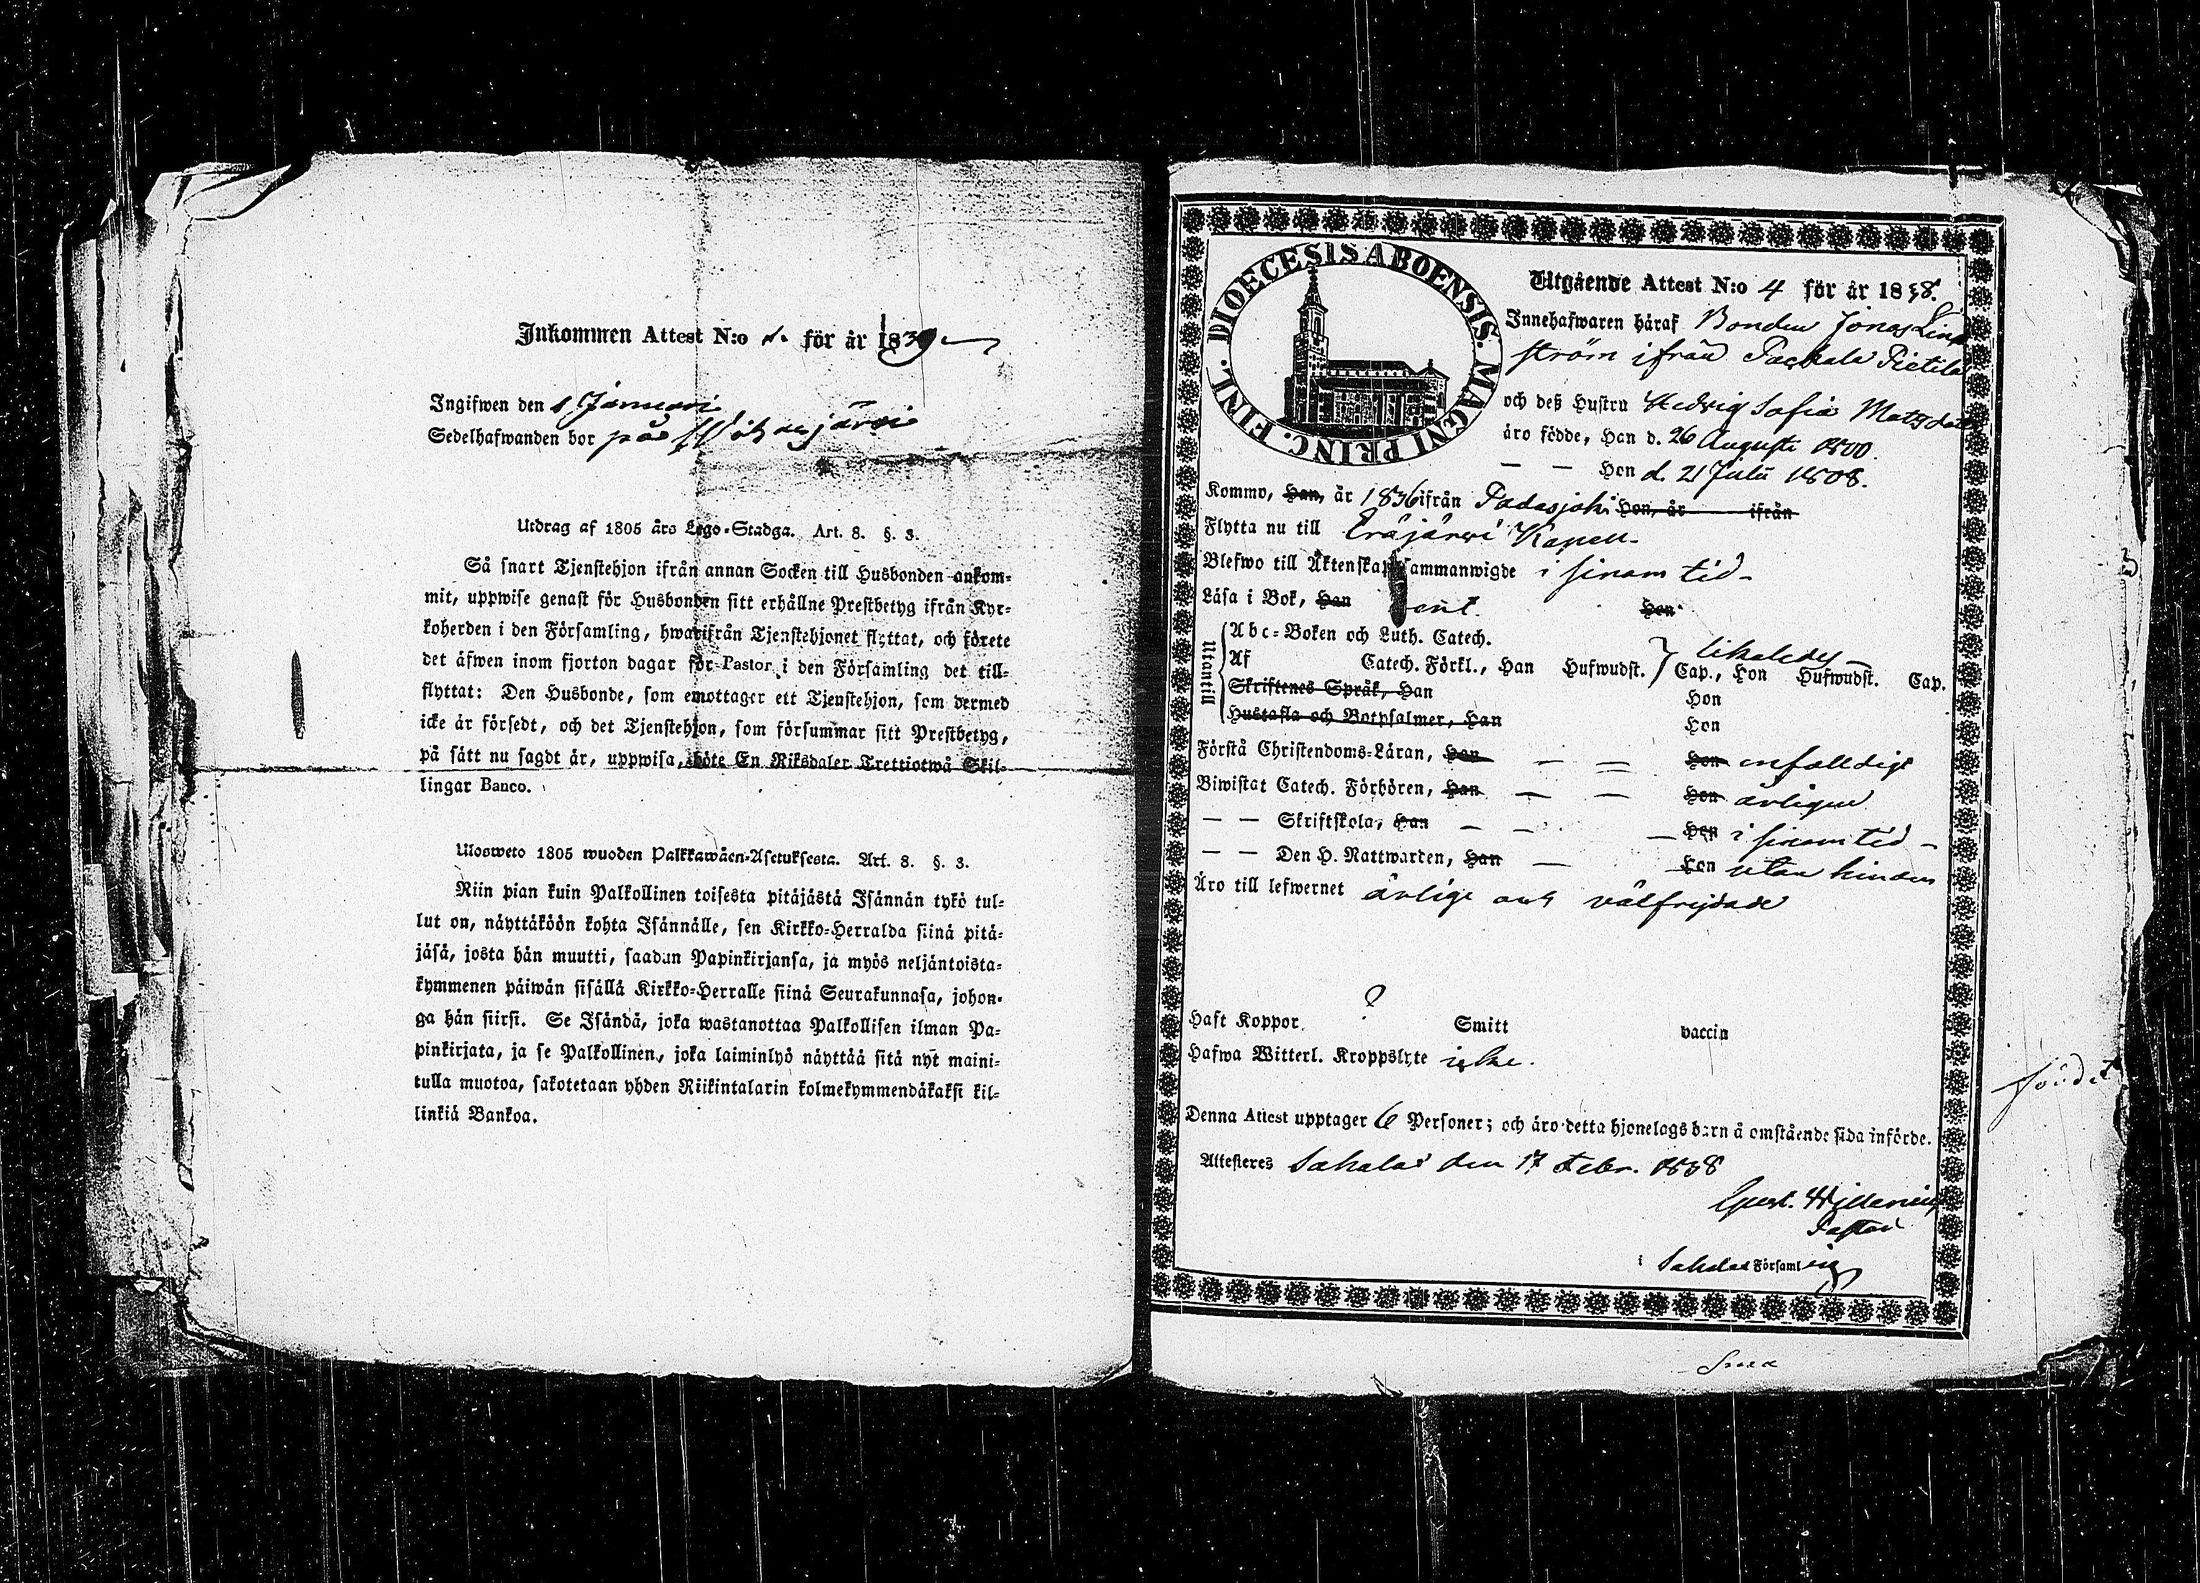 Inkommen Attest N:o 1. för år 1839
Ingifwen den 1 Januari
Sedelhafwanden bor på
Utdrag af 1805 års Lego-Stadga. Art. 8. §. 3.
Så snart Tjenstehjon ifrån annan Socken till Husbonden ankom-
mit, uppwise genast för Husbonden sitt erhållne Prestbetyg ifrån Kyr-
koherden i den Församling, hwarifrån Tjenstehjonet flyttat, och förete
det äfwen inom fjorton dagar för Pastor i den Församling det till-
flyttat: Den Husbonde, som emottager ett Tjenstehjon, som dermed
icke är försedt, och det Tjenstehjon, som försummar sitt Prestbetyg,
på sätt nu sagdt är, uppwisa, böte En Riksdaler Trettiotwå Skil-
lingar Banco.
Ulosweto 1805 wuoden Palkkawäen-Asetuksesta. Art. 8. §. 3.
Niin pian kuin Palkollinen toisesta pitäjästä Isännän tykö tul-
lut on, näyttäköön kohta Isännälle, sen Kirkko-Herralda siinä pitä-
jäsä, josta hän muutti, saadun Papinkirjansa, ja myös neljäntoista-
kymmenen päiwän sisällä Kirkko-Herralle siinä Seurakunnasa, johon-
ga hän siirsi. Se Isändä, joka wastanottaa Palkollisen ilman Pa-
pinkirjata, ja se Palkollinen, joka laiminlyö näyttää sitä nyt maini-
tulla muotoa, sakotetaan yhden Riikintalarin kolmekymmendäkaksi kil-
linkiä Bankoa.
DIOECESIS ABOENSIS. MAGNI PRINC. FINL.
Utgående Attest N:o 4 för år 1838.
Innehafwaren häraf Bonden Jonas Lind
ström ifrån Pietilä
och deß Hustru Hedvig Sofia Matsdotter
äro födde, Han d. 26 Augusti 1800.
— — Hon d. 21 Julii 1808.
Kommo, Han, år 1836 ifrån Padasjoki Hon, år ifrån
Flytta nu till Eräjärvi Kapell.
Blefwo till Äktenskap sammanwigde i sinom tid –
Läsa i Bok, Han rent. Hon
Utantill
Abc-Boken och Luth. Catech.
likaledes –
Af Catech. Förkl., Han Hufwudst. Cap., Hon Hufwudst. Cap.
Skriftenes Språk, Han Hon
Hustafla och Botpsalmer, Han Hon
Förstå Christendoms-Läran, Han — — Hon enfalldigt
Biwistat Catech. Förhören, Han — — Hon årligen
— — Skriftskola, Han — — — Hon i sinom tid –
— — Den H. Nattwarden, Han — Hon utan hinder
Äro till lefwernet ärlige och välfrejdade
Haft Koppor ? Smitt vaccin
Hafwa Witterl. Kroppslyte icke.
Denna Attest upptager 6 Personer; och äro detta hjonelags barn å omstående sida införde.
Attesteres Sahalax den 17 Febr. 1838
Gust.
Pastor
i Sahalax Församling